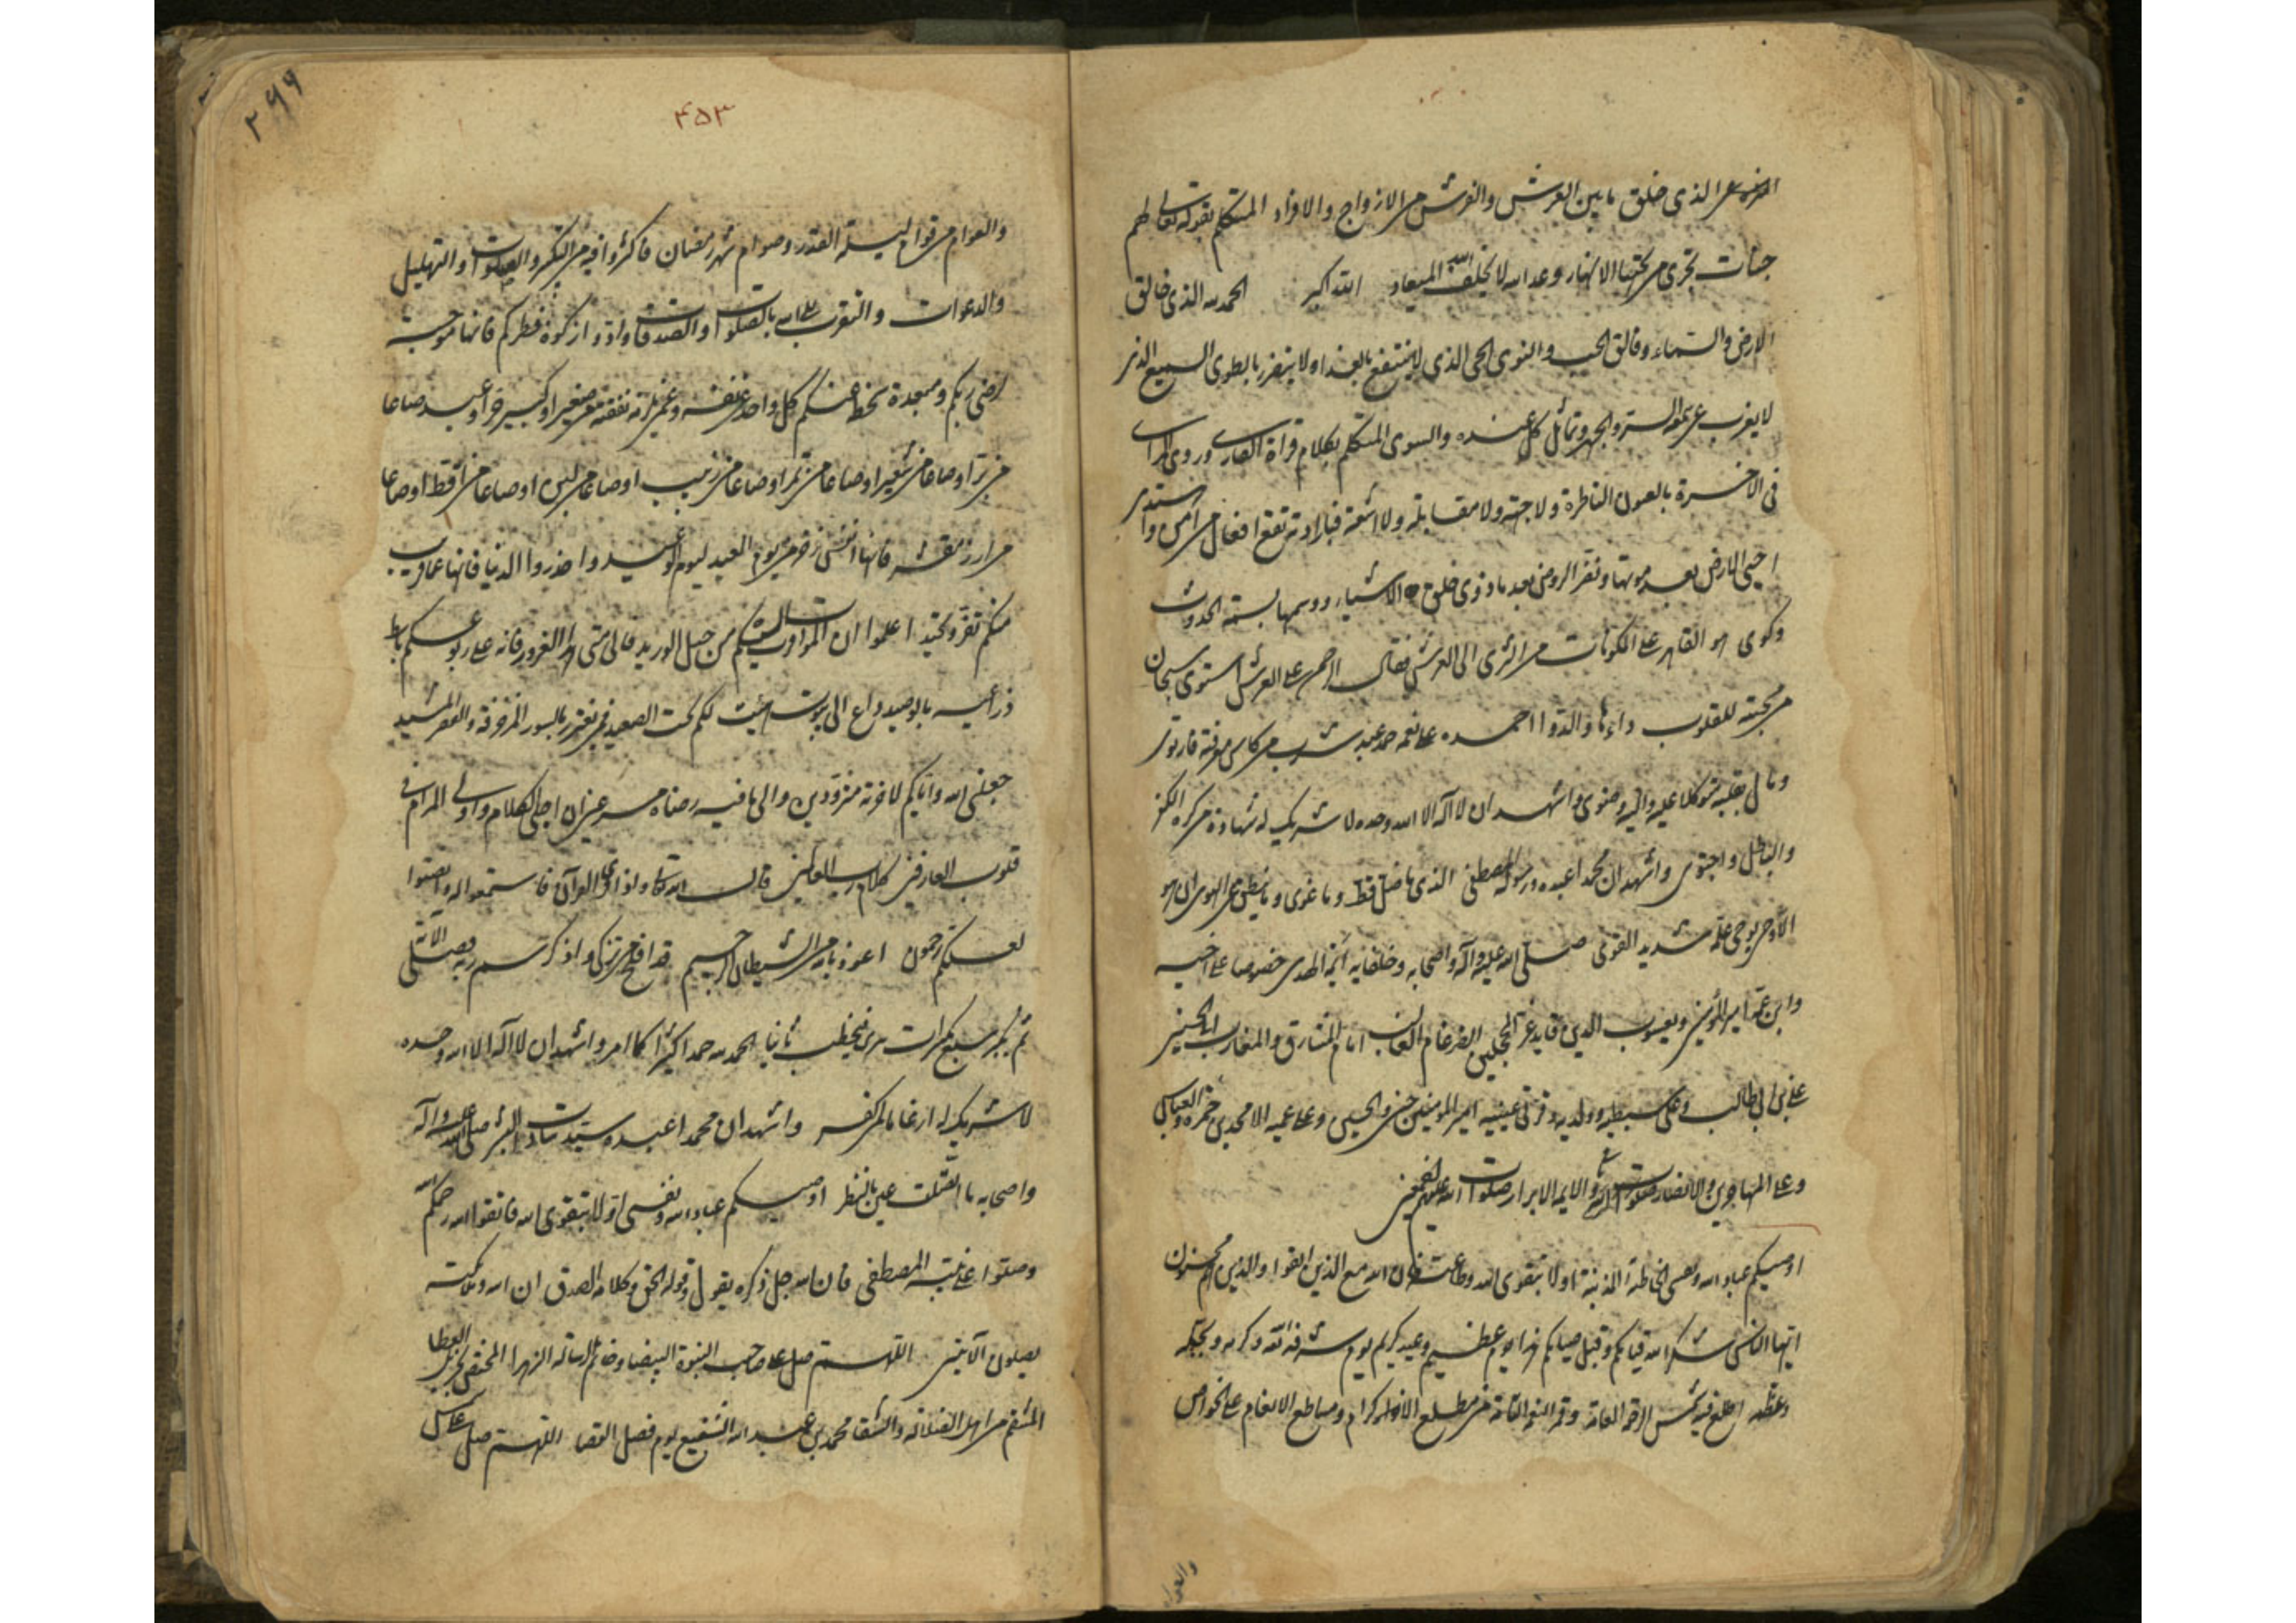 الذى خلق ما بين العرش والفرش من الازواج والافراد المتكلم بقوله تعالى لهم
جنات تجرى من تحتها الانهار وعد الله لا يخلف الله الميعاد الله اكبر الحمد لله الذى خالق
الارض والسماء وفالق الحب والنوى الحى الذى لا ينتفع بالغذا ولا يتضرر بالطوى السميع الذى
لا يعزب عن سمعه السر والجهر وتماثل كل عنده والسوى المتكلم بكلام قراة القارى وروى
فى الاخرة بالعيون الناظرة ولا جهة ولا مقابلة ولا اشعة فبارادته تقع افعال من امن و
احيى الارض بعد موتها ونضر الروض بعد ما ذوى خلق الاشياء ووسمها بسمة الحدوث
وكوى هو القاهر على المكونات من الثرى الى العرش فقال الرحمن على العرش استوى سبحان
من محبته للقلوب داءها والدوا احمده على نعمه حمد عبد شرب من كاس معرفته فارتوى
ومال بقلبه متوكلا عليه واليه وضوى واشهد ان لا اله الا الله وحده لا شريك له شهادة من كره الكفر
والباطل واجتوى واشهد ان محمدا عبده ورسوله المصطفى الذى ما ضل قط وما غوى وما ينطق عن الهوى ان هو
الا وحى يوحى علمه شديد القوى صلى الله عليه وآله واصحابه وخلفايه ائمة الهدى خصوصا على اخيه
وابن عمه امير المؤمنين ويعسوب الدين قايد غر المحجلين الضرغام الغالب امام المشارق والمغارب ابى الحسنين
على بن ابى طالب وعلى سبطيه وولديه وقرتى عينيه امير المؤمنين حسن والحسين وعلى عميه الامجدين حمزه والعباس
وعلى المهاجرين والانصار والايمه الابرار صلوات الله عليهم اجمعين
اوصيكم عباد الله ونفسى الخاطئة المذنبة اولا بتقوى الله وطاعته فان الله مع الذين اتقوا والذين هم محسنون
ايها الناس شكر الله قيامكم وقبل صيامكم هذا يوم عظيم وعيد كريم يوم شرفه الله وكرمه وبجله
وعظمه اطلع فيه شمس الرحمة العامة وقمر النعم التامة من مطلع الاكرام ومساطع الانعام على الخواص
والعوام
۴۵۳
۲۶۶
والعوام من قوام ليلة القدر وصوام شهر رمضان فاكثروا فيه من التكبير والصلوات والتهليل
والدعوات والتقرب الى الله بالصلوات والصدقات وادوا زكوة فطركم فانها موجبة
لرضى ربكم ومبعدة سخطه عنكم كل واحد عن نفسه وعمن يلزمه نفقته من صغير او كبير حر او عبد صاعا
من بر او صاعا من شعير او صاعا من تمر او صاعا من زبيب او صاعا من لبن او صاعا من اقط او صاعا
من ارز نقيه فانها انفس ذخر من يوم العيد ليوم الوعيد واحذروا الدنيا فانها عما قريب
منكم تفر وتحيد اعلموا ان الموت اقرب اليكم من حبل الوريد فالى متى هذا الغرور فانه على ربوعكم باسط
ذراعيه بالوصيد داع الى بيوت هيئت لكم تحت الصعيد فمن يغتر بالسور المزخرفة والقصر المشيد
جعلنى الله واياكم لاخرته متزودين والى ما فيه رضاه مسرعين ان اجلى الكلام واولى المرام فى
قلوب العارفين كلام رب العالمين قال الله تعالى واذا قرى القرآن فاستمعوا له وانصتوا
لعلكم ترحمون اعوذ بالله من الشيطان الرجيم قد افلح من تزكى وذكر اسم ربه فصلى الآية
ثم يكبر سبع تكبيرات فيخطب ثانيا الحمد لله حمدا كثيرا كما امر واشهد ان لا اله الا الله وحده
لا شريك له ارغاما لمن كفر واشهد ان محمدا عبده سيد سادات البشر صلى الله عليه وآله
واصحابه ما اكتحلت عين بالنظر اوصيكم عباد الله ونفسى اولا بتقوى الله فاتقوا الله رحمكم الله
وصلوا على نبيه المصطفى فان الله جل ذكره يقول وقوله الحق وكلامه الصدق ان الله وملائكته
يصلون الآيتين اللهم صل على صاحب النبوة البيضا وخاتم الرسالة الزهرا المختص بجزيل العطا
المنتقم من اهل الضلالة والشقا محمد بن عبد الله الشفيع يوم فصل القضا اللهم صل على